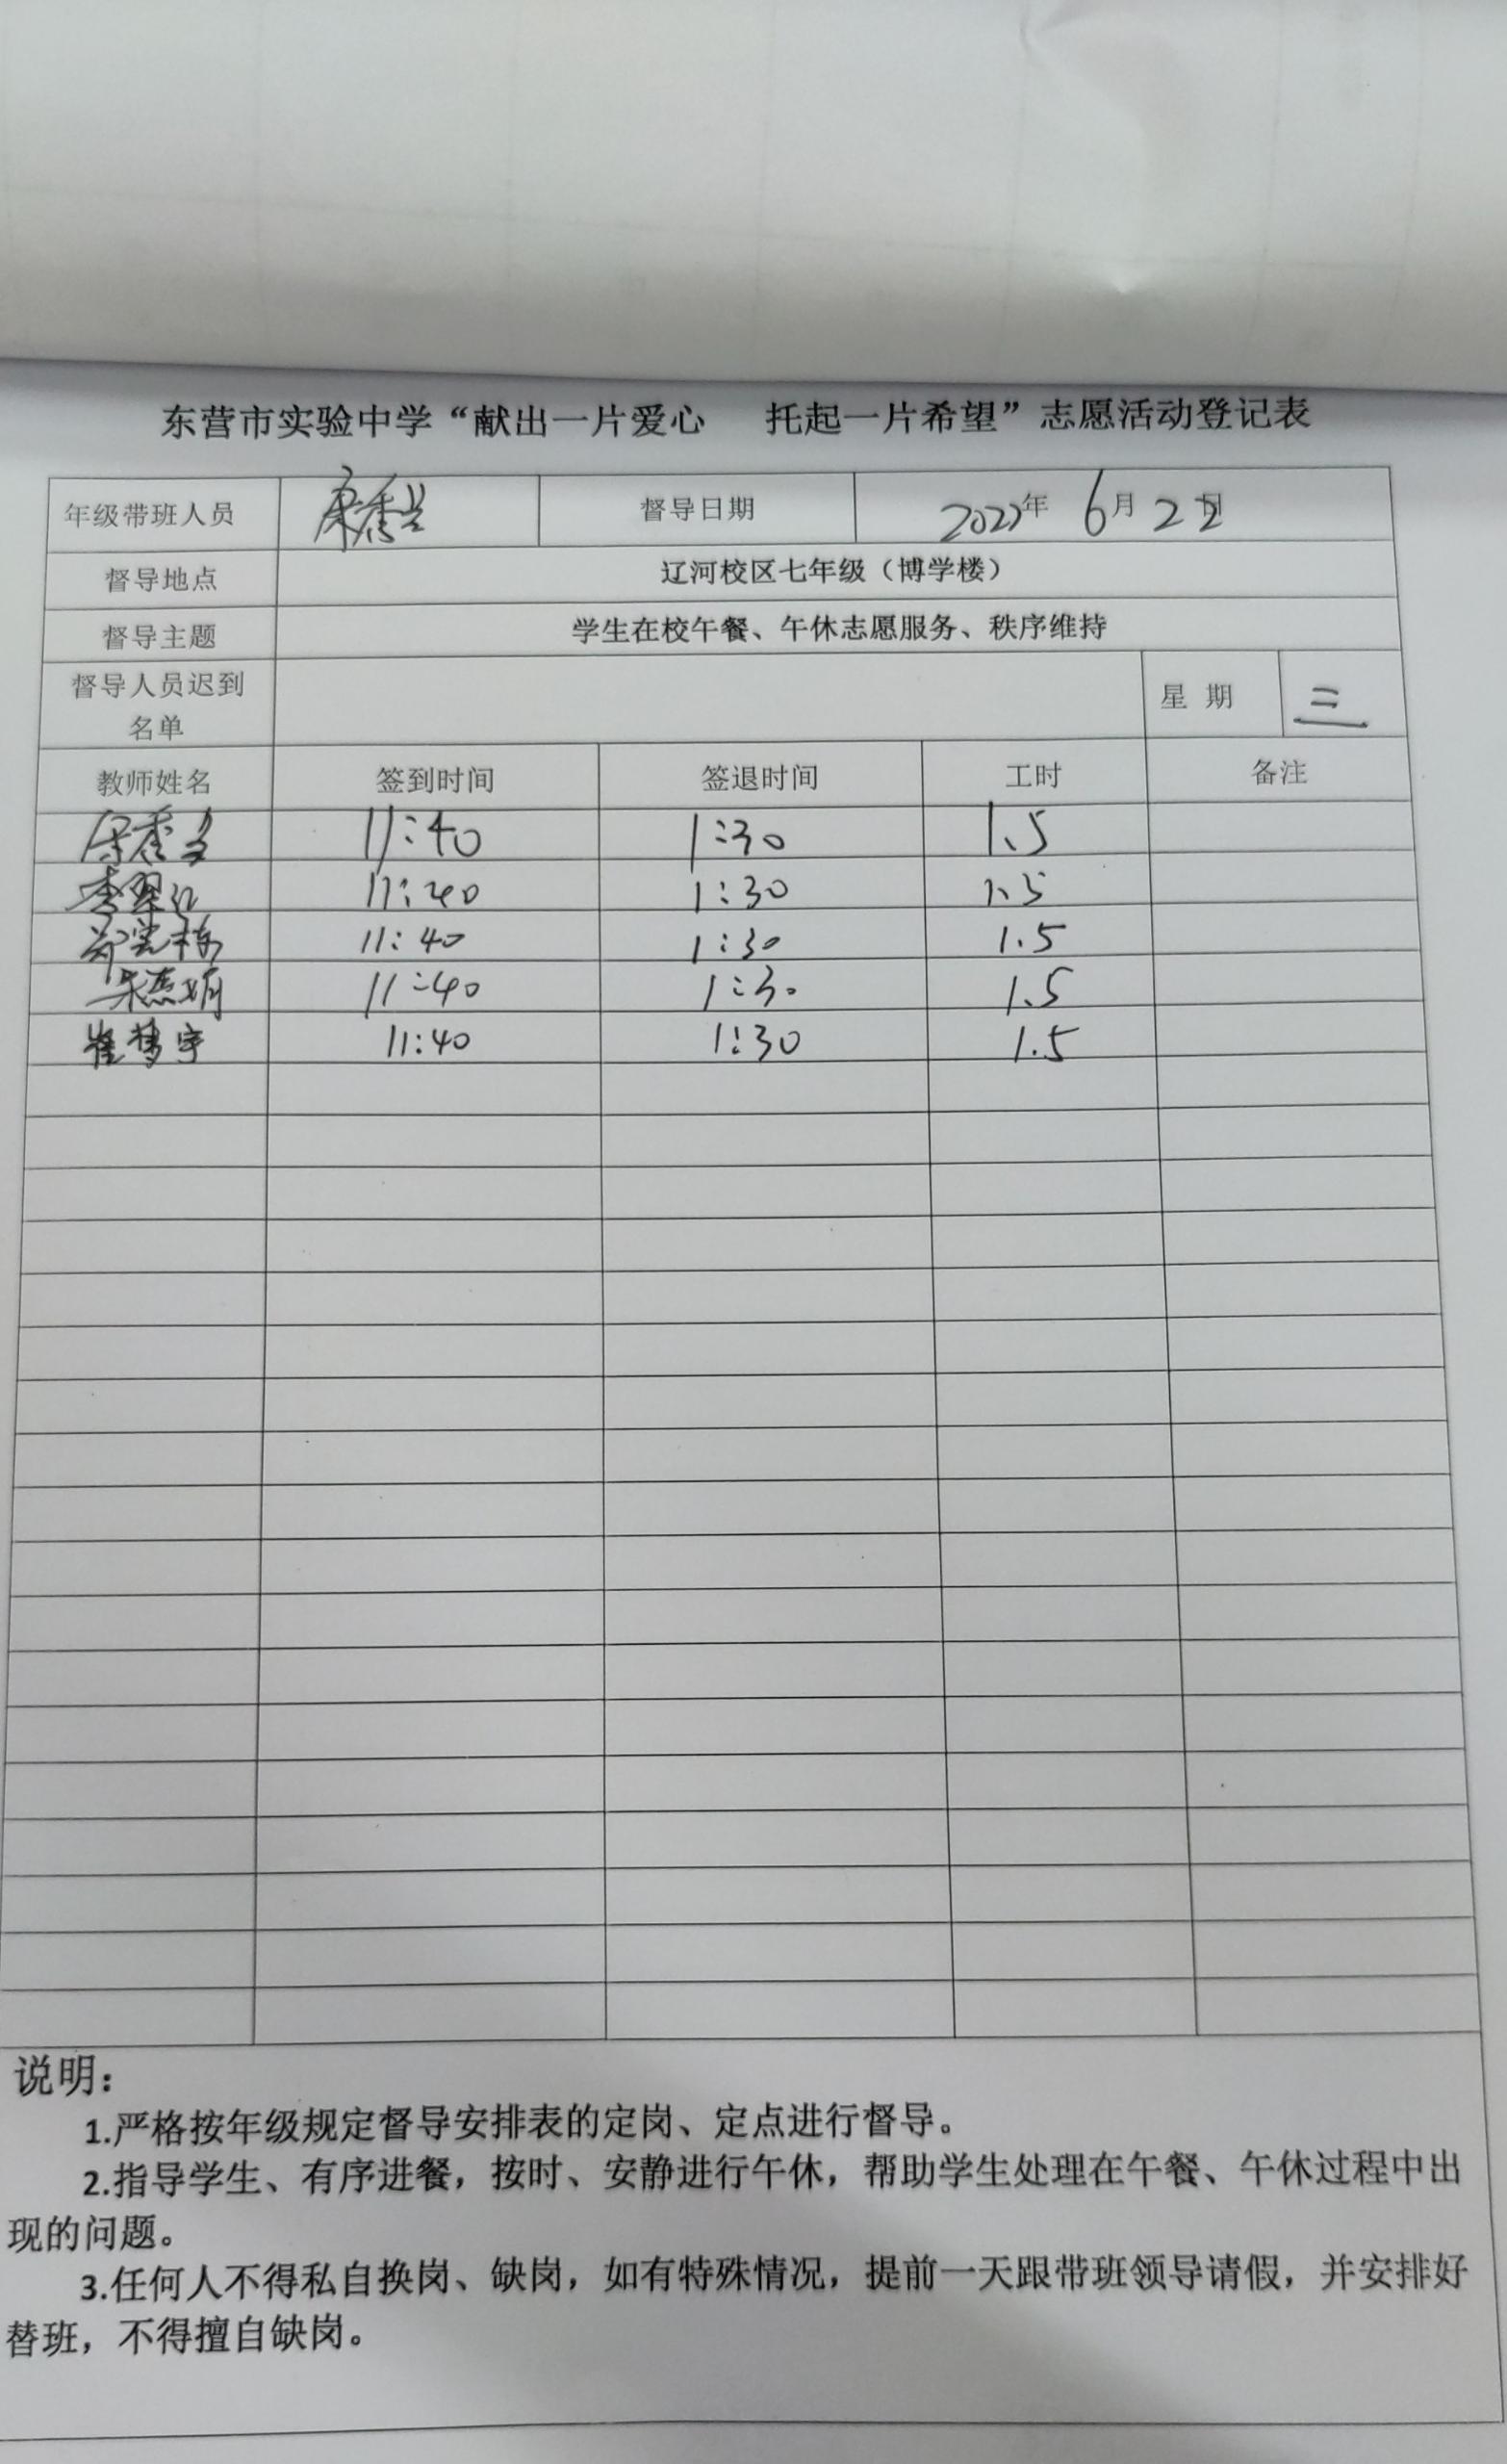 东营市实验中学“献出一片爱心 托起一片希望”志愿活动登记表
年级带班人员 督导日期 2022年 6月 22日
督导地点 辽河校区七年级（博学楼）
督导主题 学生在校午餐、午休志愿服务、秩序维持
督导人员迟到
名单 星 期 三
教师姓名 签到时间 签退时间 工时 备注
11:40 1:30 1.5
李翠红 11:40 1:30 1.5
11:40 1:30 1.5
朱燕娟 11:40 1:30 1.5
崔梦宇 11:40 1:30 1.5
说明：
1.严格按年级规定督导安排表的定岗、定点进行督导。
2.指导学生、有序进餐，按时、安静进行午休，帮助学生处理在午餐、午休过程中出
现的问题。
3.任何人不得私自换岗、缺岗，如有特殊情况，提前一天跟带班领导请假，并安排好
替班，不得擅自缺岗。